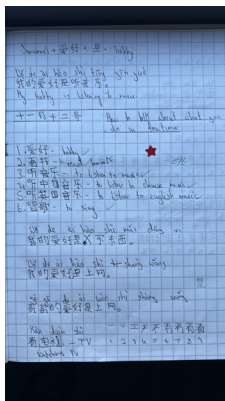 Pronoun + 爱好 + 是 - hobby
Wǒ de ài hào shì tīng yīn yuè
我的爱好是听音乐。
My hobby is listening to music
十一月十二号 How to talk about what you do in
1. 爱好 - hobby
2. 看书 - read books
3. 听音乐 - to listen to music
4. 听中国音乐 - to listen to chinese music
5. 听英国音乐 - to listen to english music
6. 唱歌 - to sing
Wǒ de ài hào shì mǎi dōng xi
我的爱好是买东西。
Wǒ de ài hào shì shàng wǎng
我的爱好是上网。
de ài hào shì shàng wǎng
的爱好是上网。
Kàn diàn shì
看电视 - TV
watching TV